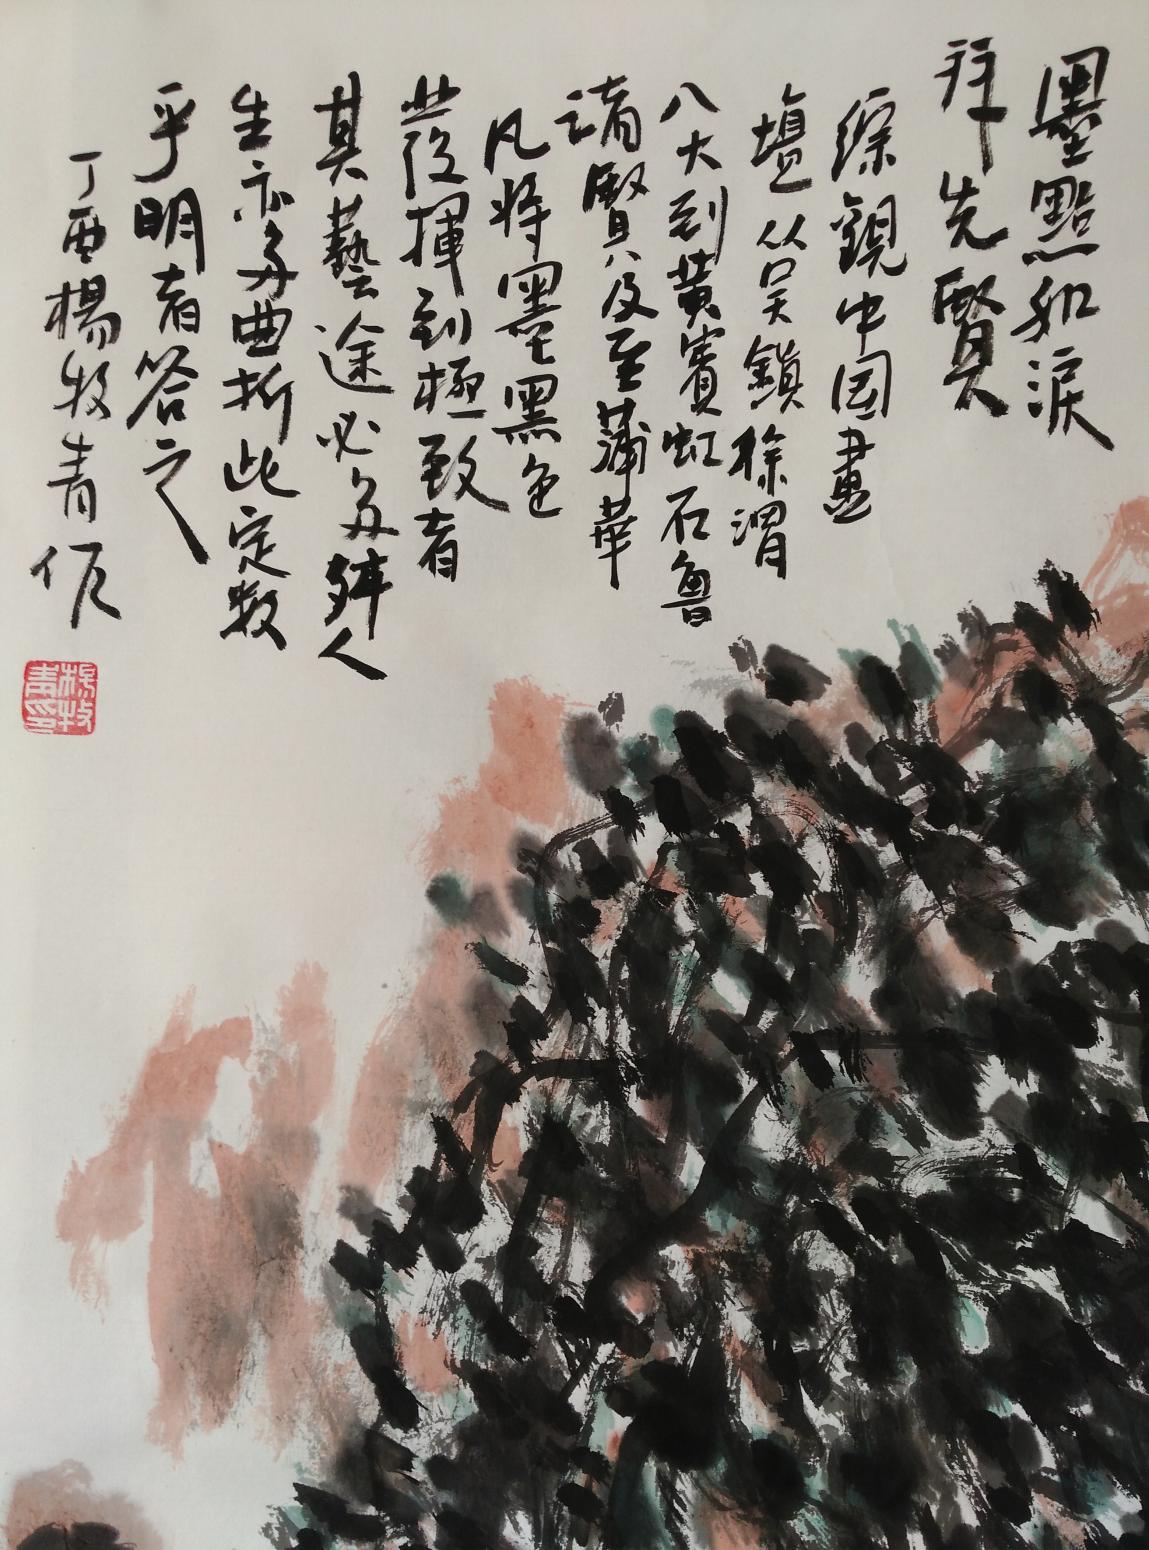 墨點和淚
拜先賢
綜觀中国畫
壇从吴鎮徐渭
八大到黄賓虹石魯
諸賢以及至蒲華
凡将墨宅黑色
發揮到極致者
其藝途必多舛人
生亦多曲折此定数
乎明者答之
丁酉楊牧青作
楊牧青印